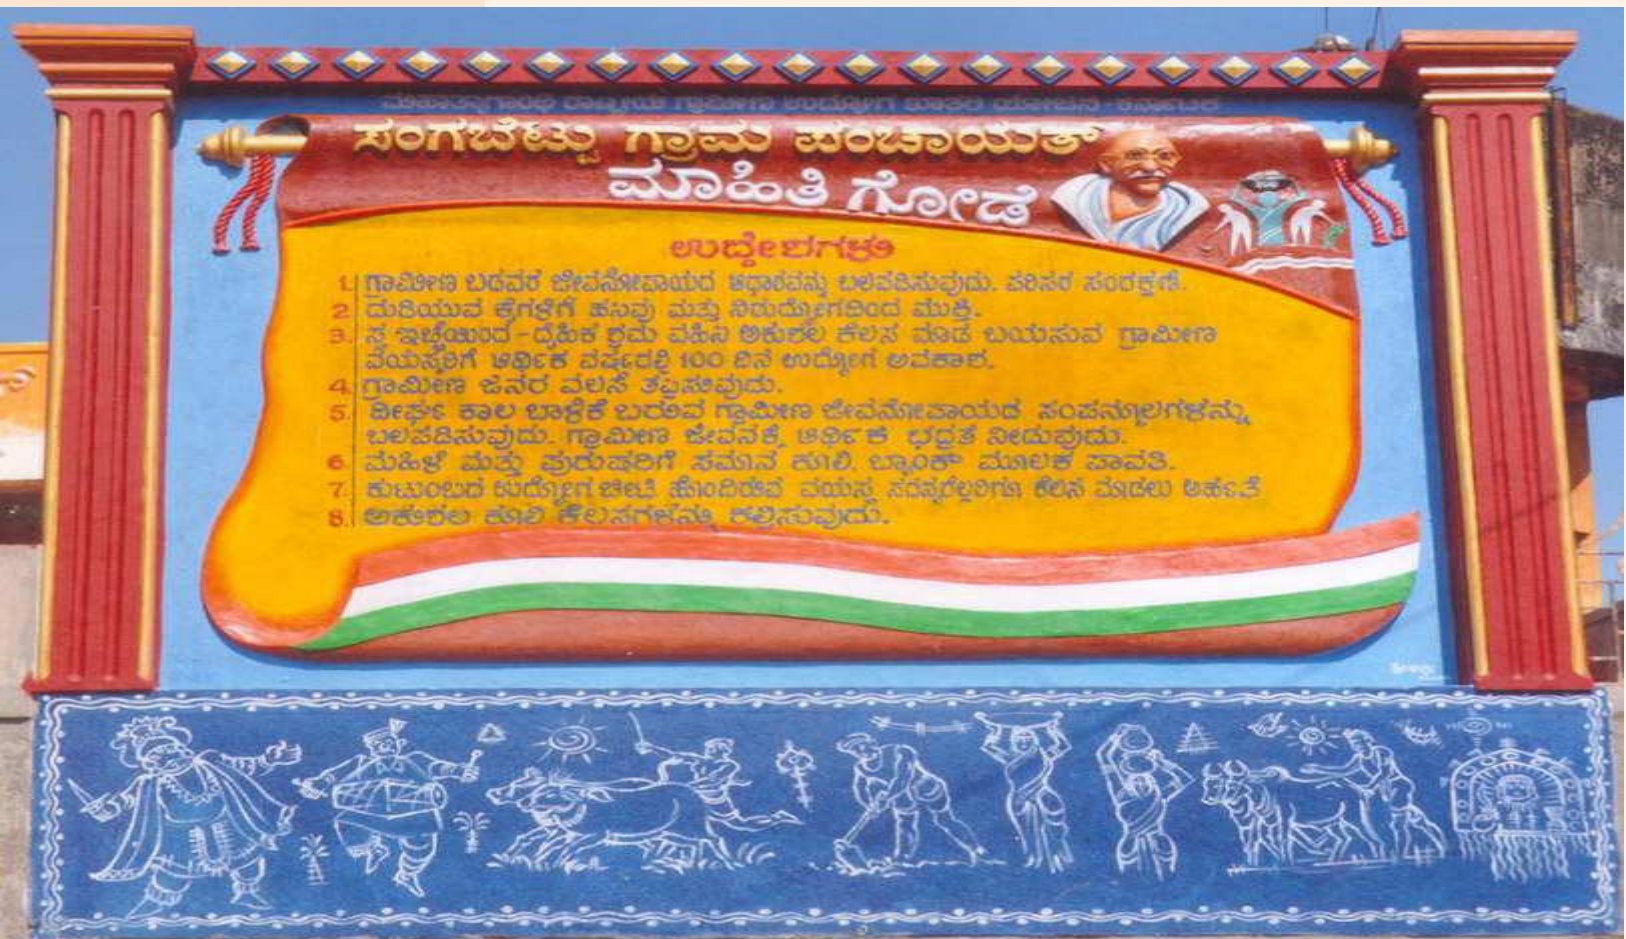 ಮಹಾತ್ಮಗಾಂಧಿ ರಾಷ್ಟ್ರೀಯ ಗ್ರಾಮೀಣ ಉದ್ಯೋಗ ಖಾತರಿ ಯೋಜನೆ - ಕರ್ನಾಟಕ
ಸಂಗಬೆಟ್ಟು ಗ್ರಾಮ ಪಂಚಾಯತ್
ಮಾಹಿತಿ ಗೋಡೆ
ಉದ್ದೇಶಗಳು
1. ಗ್ರಾಮೀಣ ಬಡವರ ಜೀವನೋಪಾಯದ ಆಧಾರವನ್ನು ಬಲಪಡಿಸುವುದು. ಪರಿಸರ ಸಂರಕ್ಷಣೆ.
2. ದುಡಿಯುವ ಕೈಗಳಿಗೆ ಹಸಿವು ಮತ್ತು ನಿರುದ್ಯೋಗದಿಂದ ಮುಕ್ತಿ.
3. ಸ್ವ ಇಚ್ಛೆಯಿಂದ - ದೈಹಿಕ ಶ್ರಮ ವಹಿಸಿ ಅಕುಶಲ ಕೆಲಸ ಮಾಡ ಬಯಸುವ ಗ್ರಾಮೀಣ
ವಯಸ್ಕರಿಗೆ ಆರ್ಥಿಕ ವರ್ಷದಲ್ಲಿ 100 ದಿನ ಉದ್ಯೋಗ ಅವಕಾಶ.
4. ಗ್ರಾಮೀಣ ಜನರ ವಲಸೆ ತಪ್ಪಿಸುವುದು.
5. ದೀರ್ಘ ಕಾಲ ಬಾಳಿಕೆ ಬರುವ ಗ್ರಾಮೀಣ ಜೀವನೋಪಾಯದ ಸಂಪನ್ಮೂಲಗಳನ್ನು
ಬಲಪಡಿಸುವುದು. ಗ್ರಾಮೀಣ ಜೀವನಕ್ಕೆ ಆರ್ಥಿಕ ಭದ್ರತೆ ನೀಡುವುದು.
6. ಮಹಿಳೆ ಮತ್ತು ಪುರುಷರಿಗೆ ಸಮಾನ ಕೂಲಿ. ಬ್ಯಾಂಕ್ ಮೂಲಕ ಪಾವತಿ.
7. ಕುಟುಂಬದ ಉದ್ಯೋಗ ಚೀಟಿ ಹೊಂದಿರುವ ವಯಸ್ಕ ಸದಸ್ಯರೆಲ್ಲರಿಗೂ ಕೆಲಸ ಮಾಡಲು ಅರ್ಹತೆ
8. ಅಕುಶಲ ಕೂಲಿ ಕೆಲಸಗಳನ್ನು ಕಲ್ಪಿಸುವುದು.